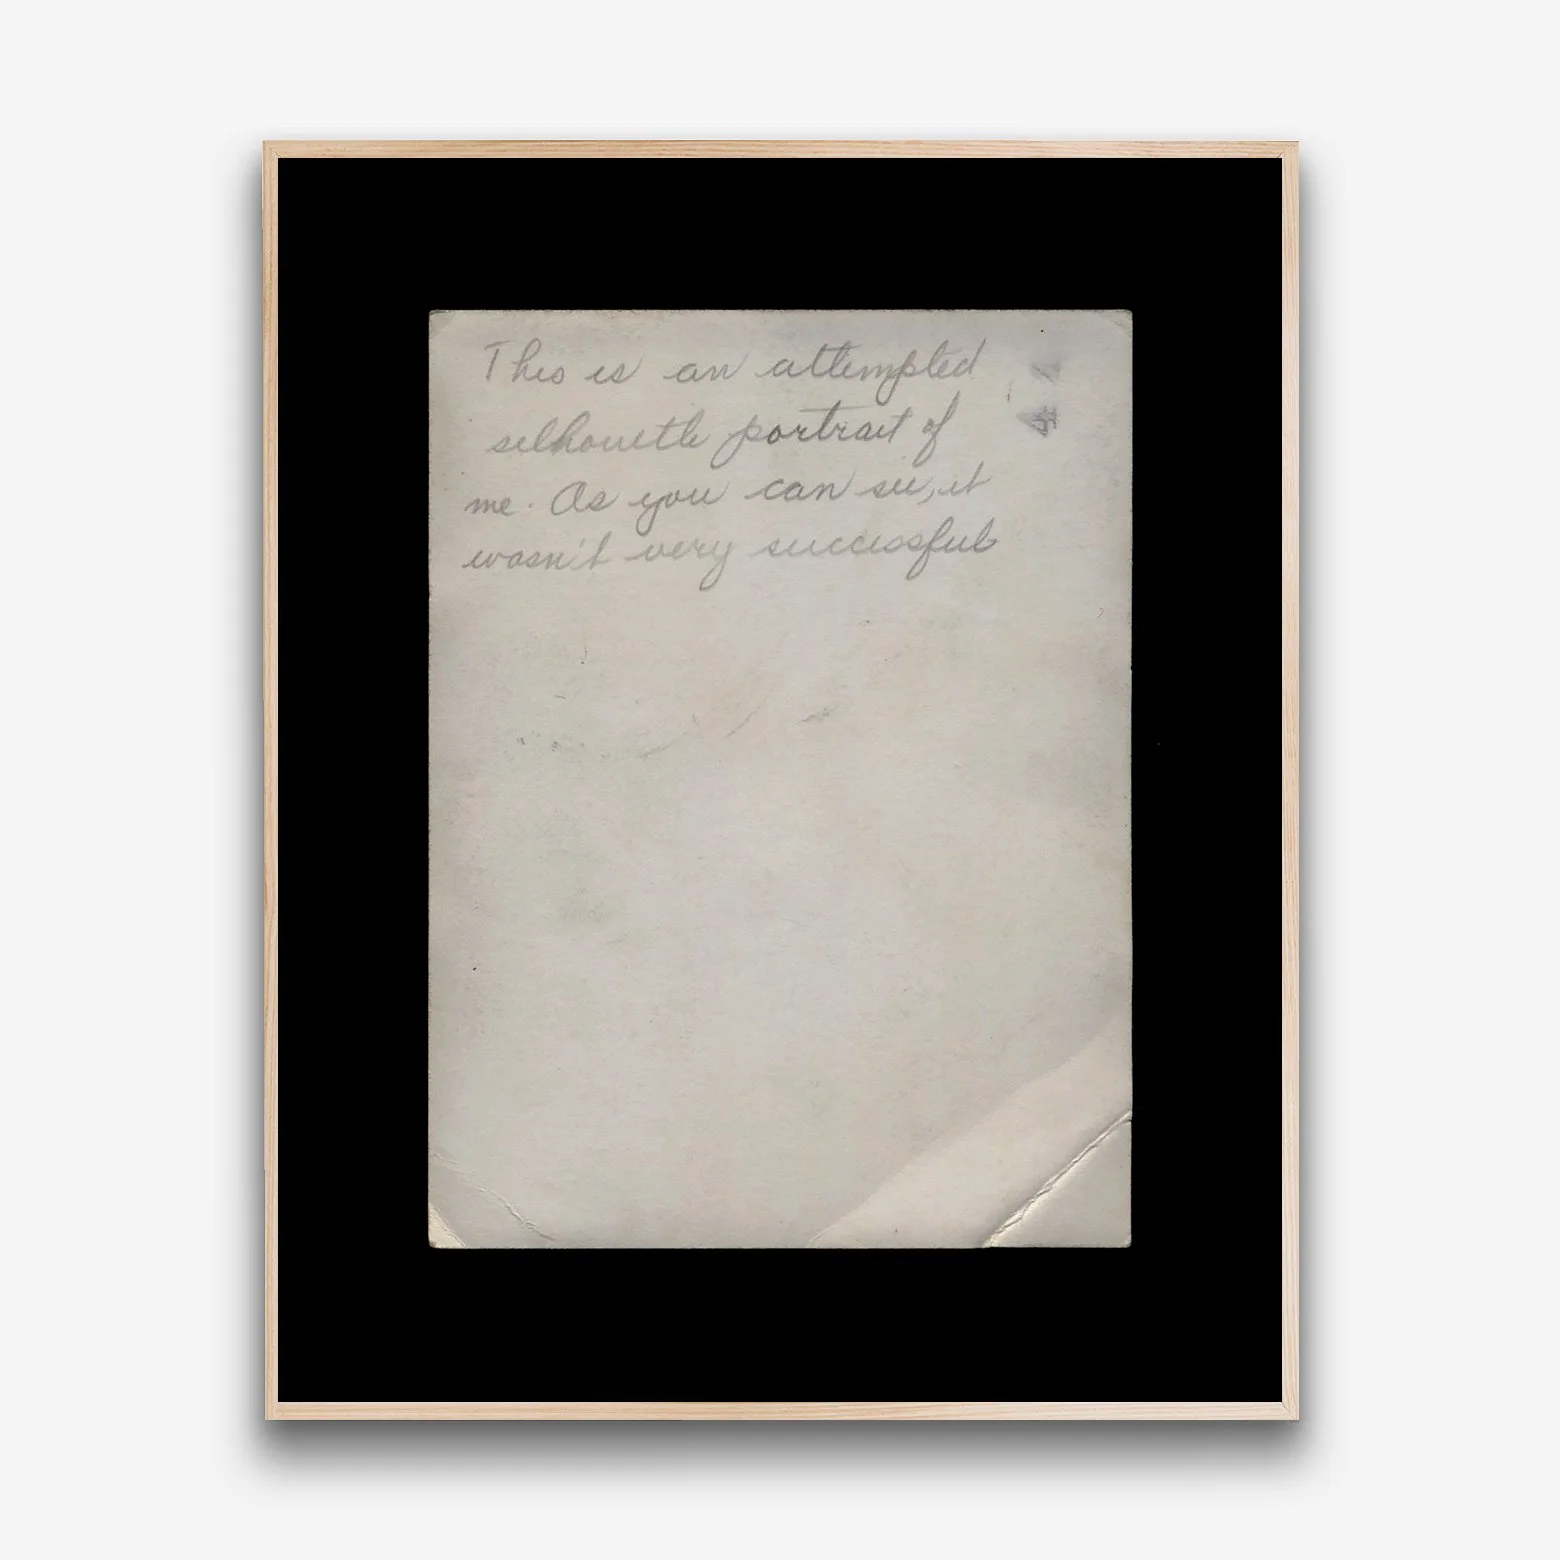 This is an attempted
silhouette portrait of
me. As you can see, it
wasn't very successful